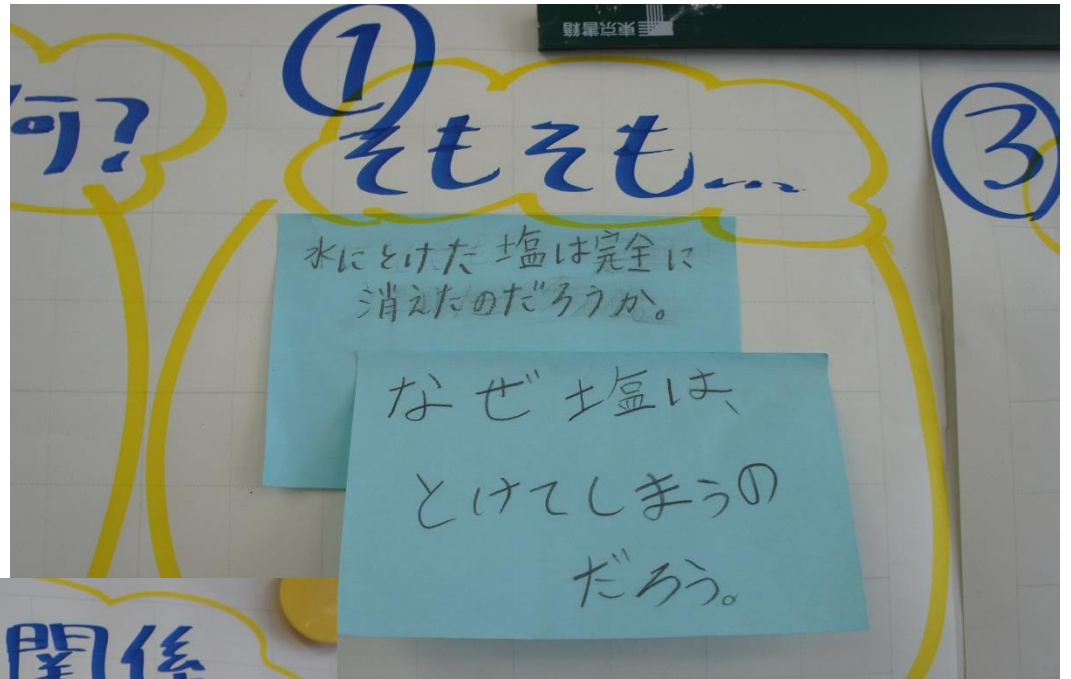 東京書籍
何?
①
そもそも…
③
水にとけた塩は完全に
消えたのだろうか。
なぜ塩は、
とけてしまうの
だろう。
関係